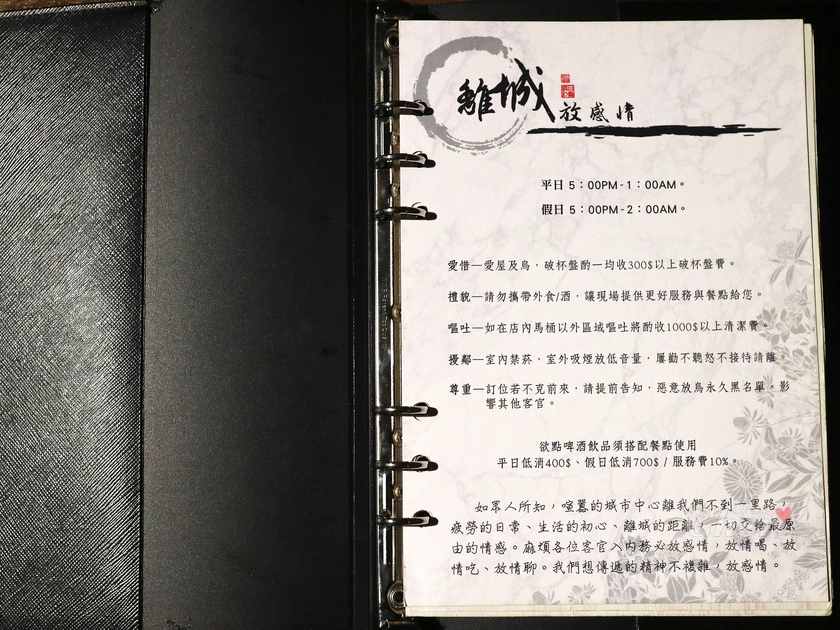 離城
放感情
平日 5：00PM-1：00AM。
假日 5：00PM-2：00AM。
愛惜—愛屋及鳥，破杯盤酌一均收300$以上破杯盤費。
禮貌—請勿攜帶外食/酒，讓現場提供更好服務與餐點給您。
嘔吐—如在店內馬桶以外區域嘔吐將酌收1000$以上清潔費。
擾鄰—室內禁菸，室外吸煙放低音量，屢勸不聽恕不接待請離。
尊重—訂位若不克前來，請提前告知，惡意放鳥永久黑名單，影
響其他客官。
欲點啤酒飲品須搭配餐點使用
平日低消400$、假日低消700$ / 服務費10%。
如眾人所知，喧囂的城市中心離我們不到一里路，
疲勞的日常、生活的初心、離城的距離，一切交給最原
由的情感。麻煩各位客官入內務必放感情，放情喝、放
情吃、放情聊。我們想傳遞的精神不複雜，放感情。